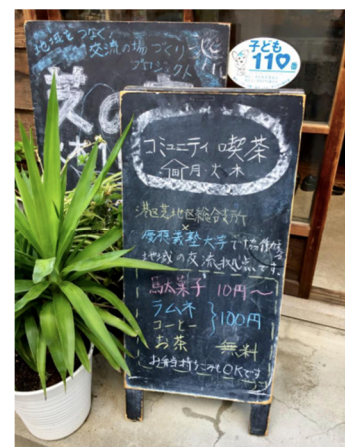 地域をつなぐ!
交流の場づくり
プロジェクト
子ども
110番
コミュニティ喫茶
月火木
港区芝地区総合支所
×
慶應義塾大学で協働する
地域の交流拠点です。
駄菓子 10円〜
ラムネ
コーヒー
}100円
お茶 無料
お弁当持ちこみもOKです